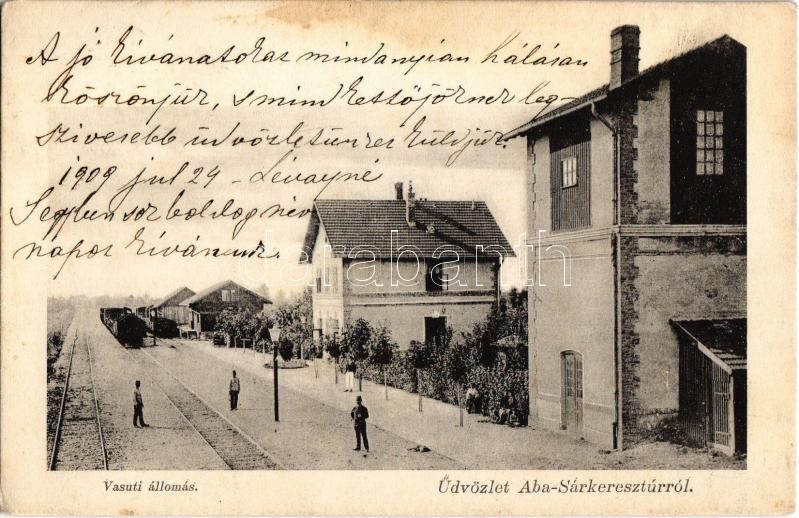 A jó kivánatokat mindanyian hálásan
köszönjük, s mind kettőjöknek leg-
szivesebb üdvözletünket küldjük.
1909 jul 24 - Lévayné
Segben sok boldog név
napot kivánunk.
darabanth
Vasuti állomás.
Üdvözlet Aba-Sárkeresztúrról.